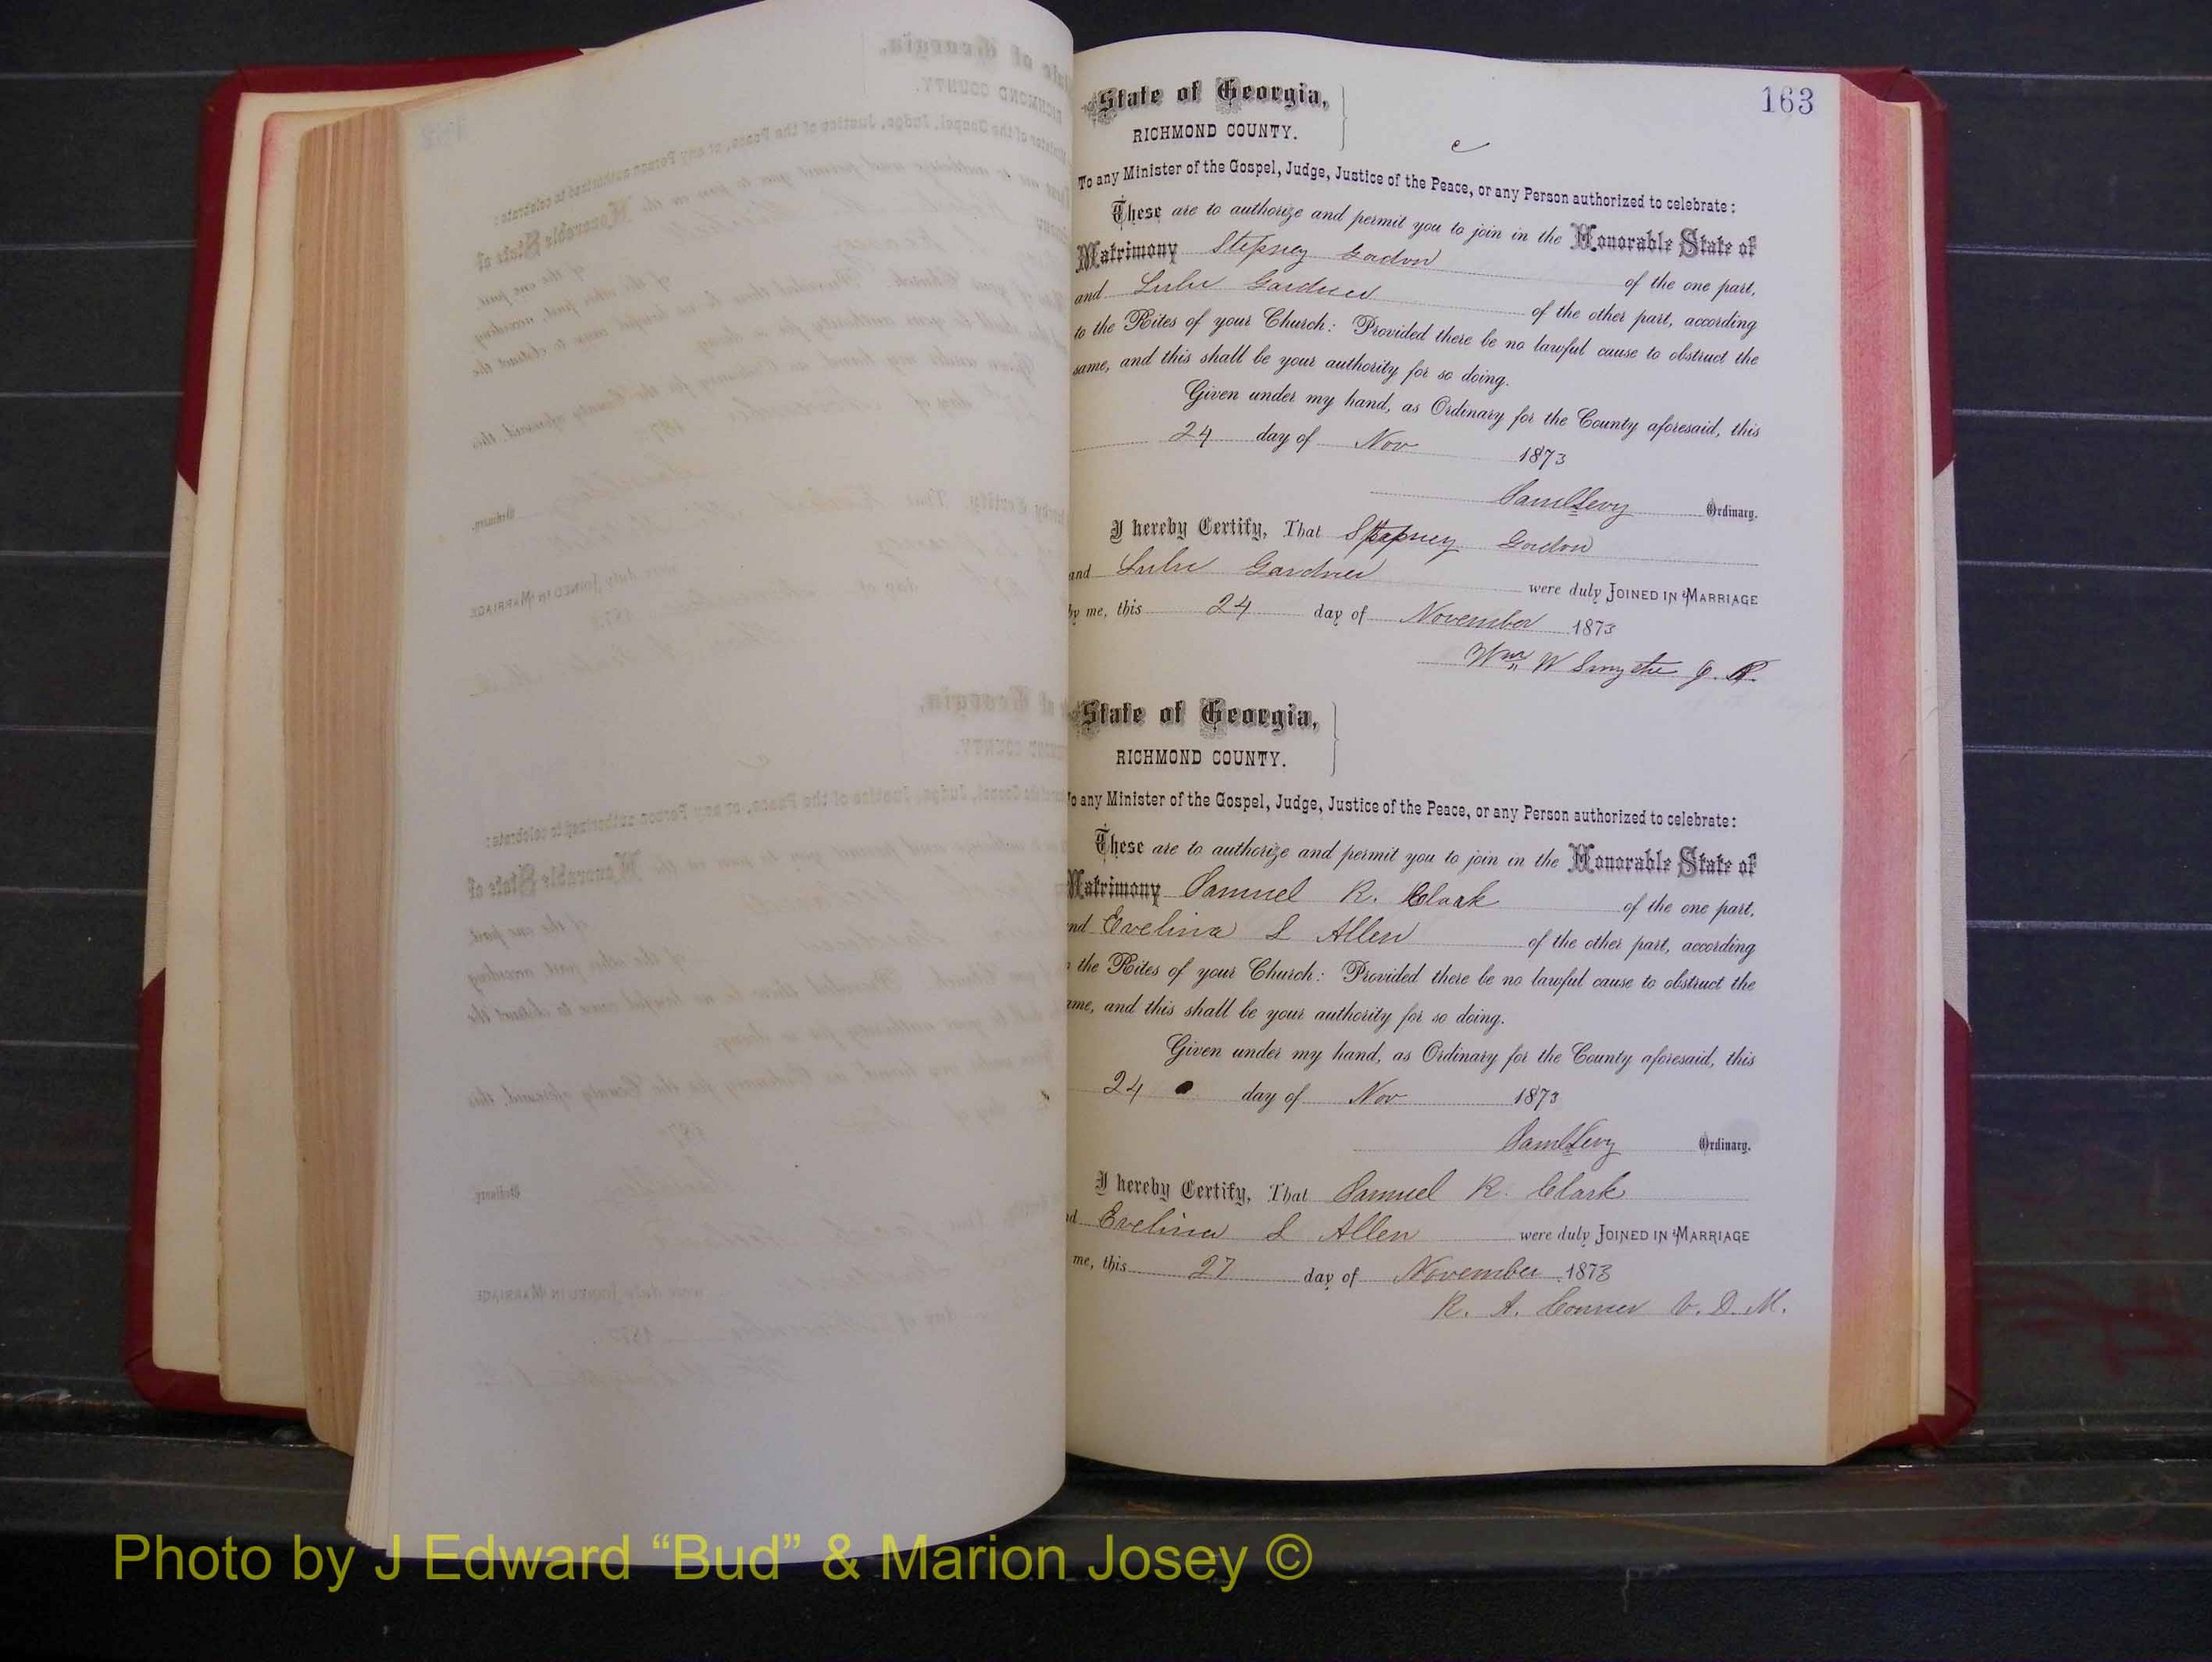 163
State of Georgia,
RICHMOND COUNTY.
c
To any Minister of the Gospel, Judge, Justice of the Peace, or any Person authorized to celebrate:
These are to authorize and permit you to join in the Honorable State of
Matrimony Stepney Gordon of the one part,
and Lulu Gardner of the other part, according
to the Rites of your Church: Provided there be no lawful cause to obstruct the
same, and this shall be your authority for so doing.
Given under my hand, as Ordinary for the County aforesaid, this
24 day of Nov 1873
Saml Levy Ordinary.
I hereby Certify, That Stepney Gordon
and Lulu Gardner were duly JOINED IN MARRIAGE
by me, this 24 day of November 1873
Wm W Smythe J. P.
State of Georgia,
RICHMOND COUNTY.
To any Minister of the Gospel, Judge, Justice of the Peace, or any Person authorized to celebrate:
These are to authorize and permit you to join in the Honorable State of
Matrimony Samuel R. Clark of the one part,
nd Evelina L Allen of the other part, according
the Rites of your Church: Provided there be no lawful cause to obstruct the
ame, and this shall be your authority for so doing.
Given under my hand, as Ordinary for the County aforesaid, this
24 day of Nov 1873
Saml Levy Ordinary.
I hereby Certify, That Samuel R. Clark
nd Evelina L Allen were duly JOINED IN MARRIAGE
me, this 27 day of November 1873
R. A. Conner V. D. M.
Photo by J Edward “Bud” & Marion Josey ©